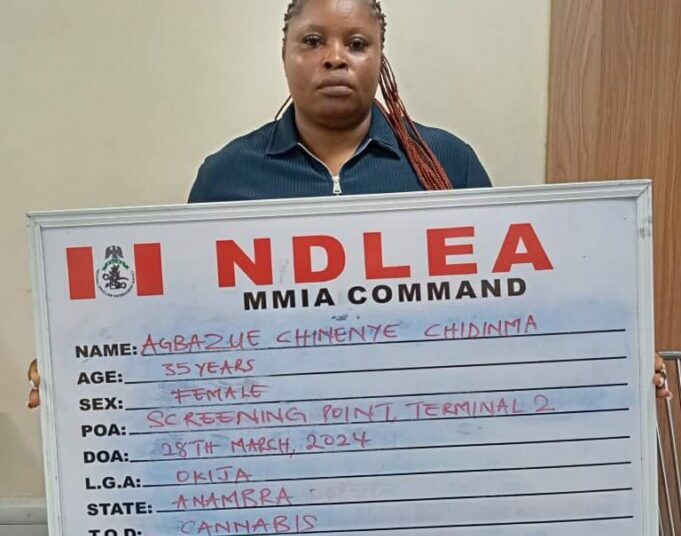 NDLEA
MMIA COMMAND
NAME: AGBAZUE CHINENYE CHIDINMA
AGE: 35 YEARS
SEX: FEMALE
POA: SCREENING POINT, TERMINAL 2
DOA: 28TH MARCH, 2024
L.G.A: OKIJA
STATE: ANAMBRA
T.O.D: CANNABIS